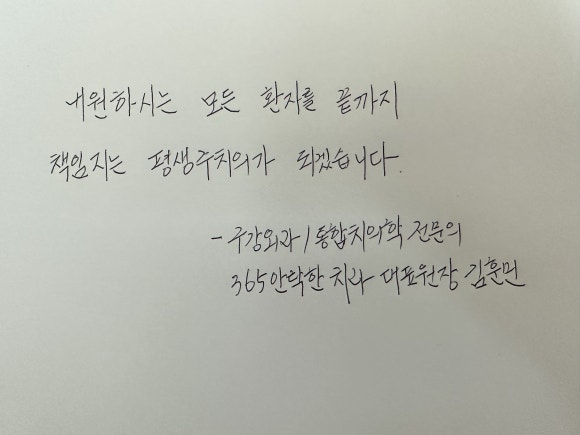 내원하시는 모든 환자를 끝까지
책임지는 평생주치의가 되겠습니다.
- 구강외과 / 통합치의학 전문의
365안락한 치과 대표원장 김훈민